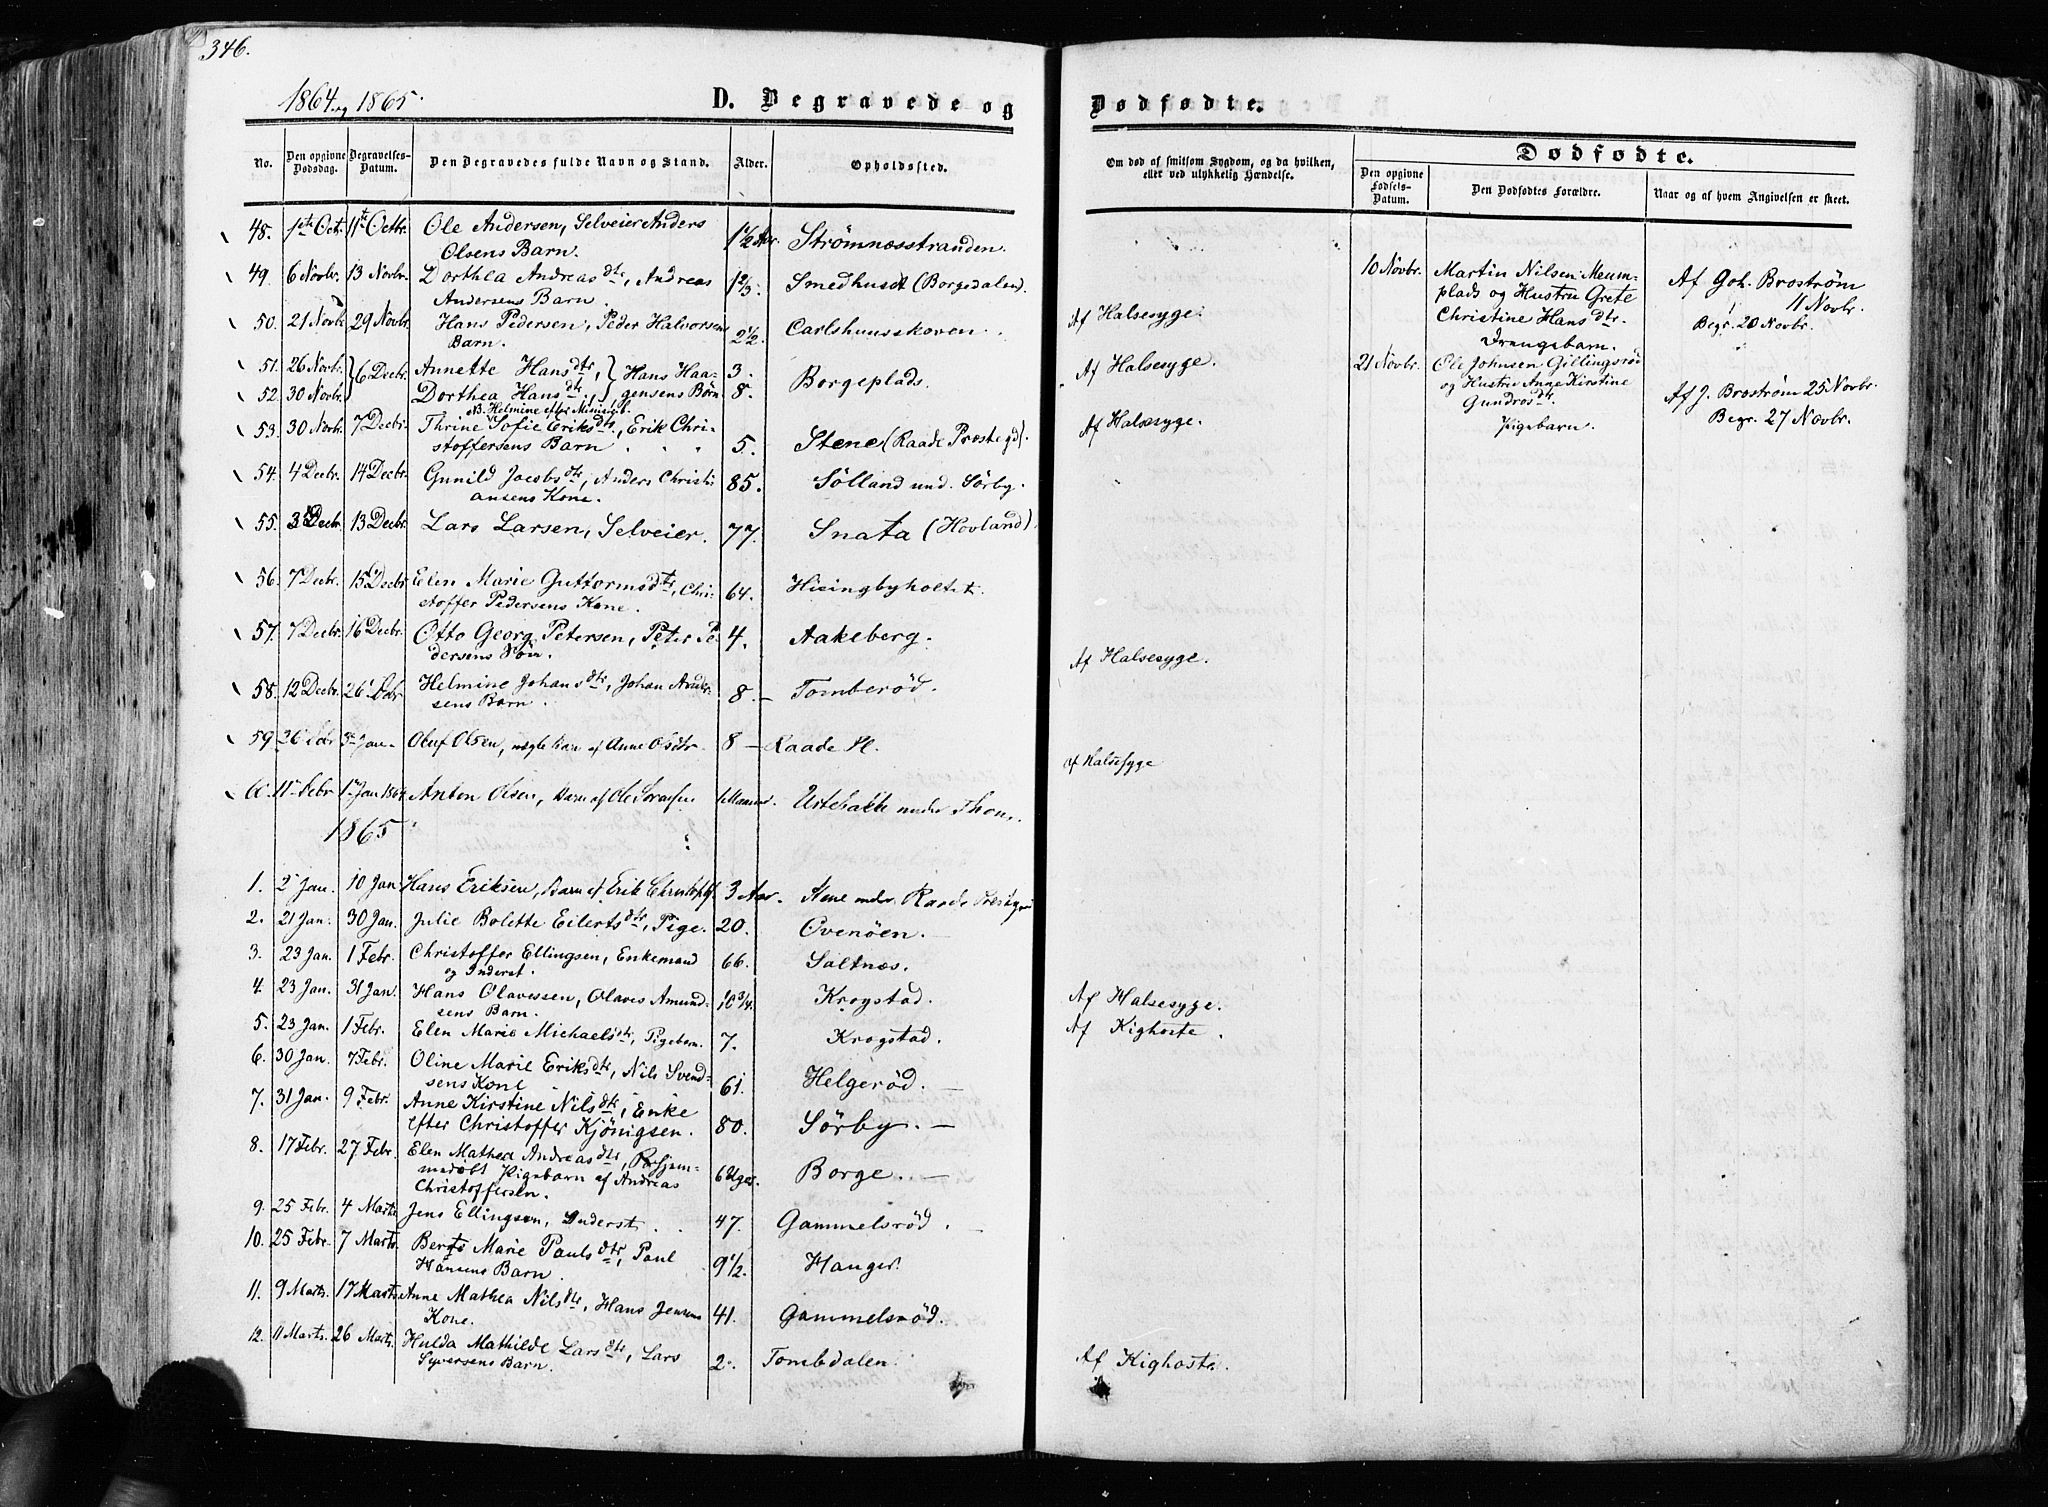 346.
1864 og 1865.
D. Begravede og
No.
Den opgivne Dødsdag.
Begravelses-Datum.
Den Begravedes fulde Navn og Stand.
Alder.
Opholdssted.
48. 1ste Oct. 11te Octbr. Ole Andersen, Selveier Anders
Olsens Barn. 1 1/2 Aar. Strømnæsstranden.
49. 6 Novbr. 13 Novbr. Dorthea Andreasdtr, Andreas
Andersens Barn. 1 2/3. Smedhuset (Borgedalen).
50. 21 Novbr. 29 Novbr. Hans Pedersen, Peder Halvorsens
Barn. 2 1/2. Carlshuusskoven.
51. 26 Novbr. } 6 Decbr. Annette Hansdtr, } Hans Haa- 3.
52. 30 Novbr. Dorthea Hansdtr., gensens Børn 8. Borgeplads.
NB. Helmine efter
53. 30 Novbr. 7 Decbr. Thrine Sofie Eriksdtr, Erik Chri-
stoffersens Barn 5. Stene (Raade Præstegd).
54. 4 Decbr. 14 Decbr. Gunild Jacobsdtr, Anders Christi
ansens Kone. 85. Sølland und. Sørby.
55. 3 Decbr. 13 Decbr. Lars Larsen, Selveier. 77. Snata (Hovland).
56. 7 Decbr. 15 Decbr. Elen Marie Guttormsdtr, Chri-
stoffer Pedersens Kone. 64. Hisingbyholtet.
57. 7 Decbr. 16 Decbr. Otto Georg Petersen, Peter Pe-
dersens Søn. 4. Aakeberg.
58. 12 Decbr. 26 Dcbr. Helmine Johansdtr, Johan Ander-
sens Barn. 8 — Tomberød.
59 Oluf Olsen, uægte Barn af Anne Olsdtr. 8 — Raade Pl.
Anton Olsen, Barn af Ole Ustebakke under Thom.
1865.
1. 2 Jan. 10 Jan Hans Eriksen, Barn af Erik Christophs. 3 Aar. Stene under Raade Præstegrd
2. 21 Jan. 30 Jan. Julie Bolette Eilertsdtr, Pige. 20. Ovenøen. —
3. 23 Jan. 1 Febr. Christoffer Ellingsen, Enkemand
og Inderst. 66. Saltnæs.
4. 23 Jan. 31 Jan. Hans Olavessen, Olaves Amund-
sens Barn. 10 3/4. Krogstad.
5. 23 Jan. 1 Febr. Elen Marie Michaelsdtr, Pigebarn. 7. Krogstad.
6. 30 Jan. 7 Febr. Oline Marie Eriksdtr, Nils Svend-
sens Kone 61. Helgerød. —
7. 31 Jan. 9 Febr. Anne Kirstine Nilsdtr, Enke
efter Christoffer Kjönigsen. 80. Sørby. —
8. 17 Febr. 27 Febr. Elen Mathea Andreasdtr, Hjem-
medøbt Pigebarn af Andreas
Christoffersen. 6 Uger. Borge. —
9. 25 Febr. 4 Marts Jens Ellingsen, Inderst. 47. Gammelsrød.
10. 25 Febr. 7 Marts. Berte Marie Paulsdtr, Paul
Hansens Barn. 9 1/2. Hanger.
11. 9 Marts. 17 Marts Anne Mathea Nilsdtr, Hans Jensens
Kone. 41. Gammelsrød.
12. 11 Marts. 26 Marts. Hulda Mathilde Larsdtr, Lars
Syversens Barn. 2. Tombdalen.
Dødfødte.
Om død af smitsom Sygdom, og da hvilken,
eller ved ulykkelig Hændelse.
Dødfødte.
Den opgivne Fødsels-Datum.
Den Dødfødtes Forældre.
Naar og af hvem Angivelsen er skeet.
Af Halsesyge.
Af Halsesyge.
Af Halsesyge.
Af Halsesyge.
af Halsesyge
Af Halsesyge.
Af Kighoste.
Af Kighoste.
10 Novbr. Martin Nilsen Meum-
plads og Hustru Grete
Christine Hansdtr.
Drengebarn.
Af Joh. Broström
11 Novbr.
Begr. 20 Novbr.
21 Novbr. Ole Johnsen Gillingsrød
og Hustru Anne Kirstine
Gundrosdtr.
Pigebarn.
Af J. Broström 25 Novbr.
Begr. 27 Novbr.